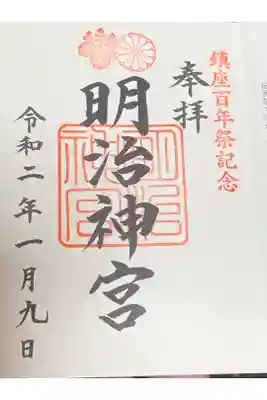 鎮座百年祭記念
奉拝
明治神宮
令和二年一月九日